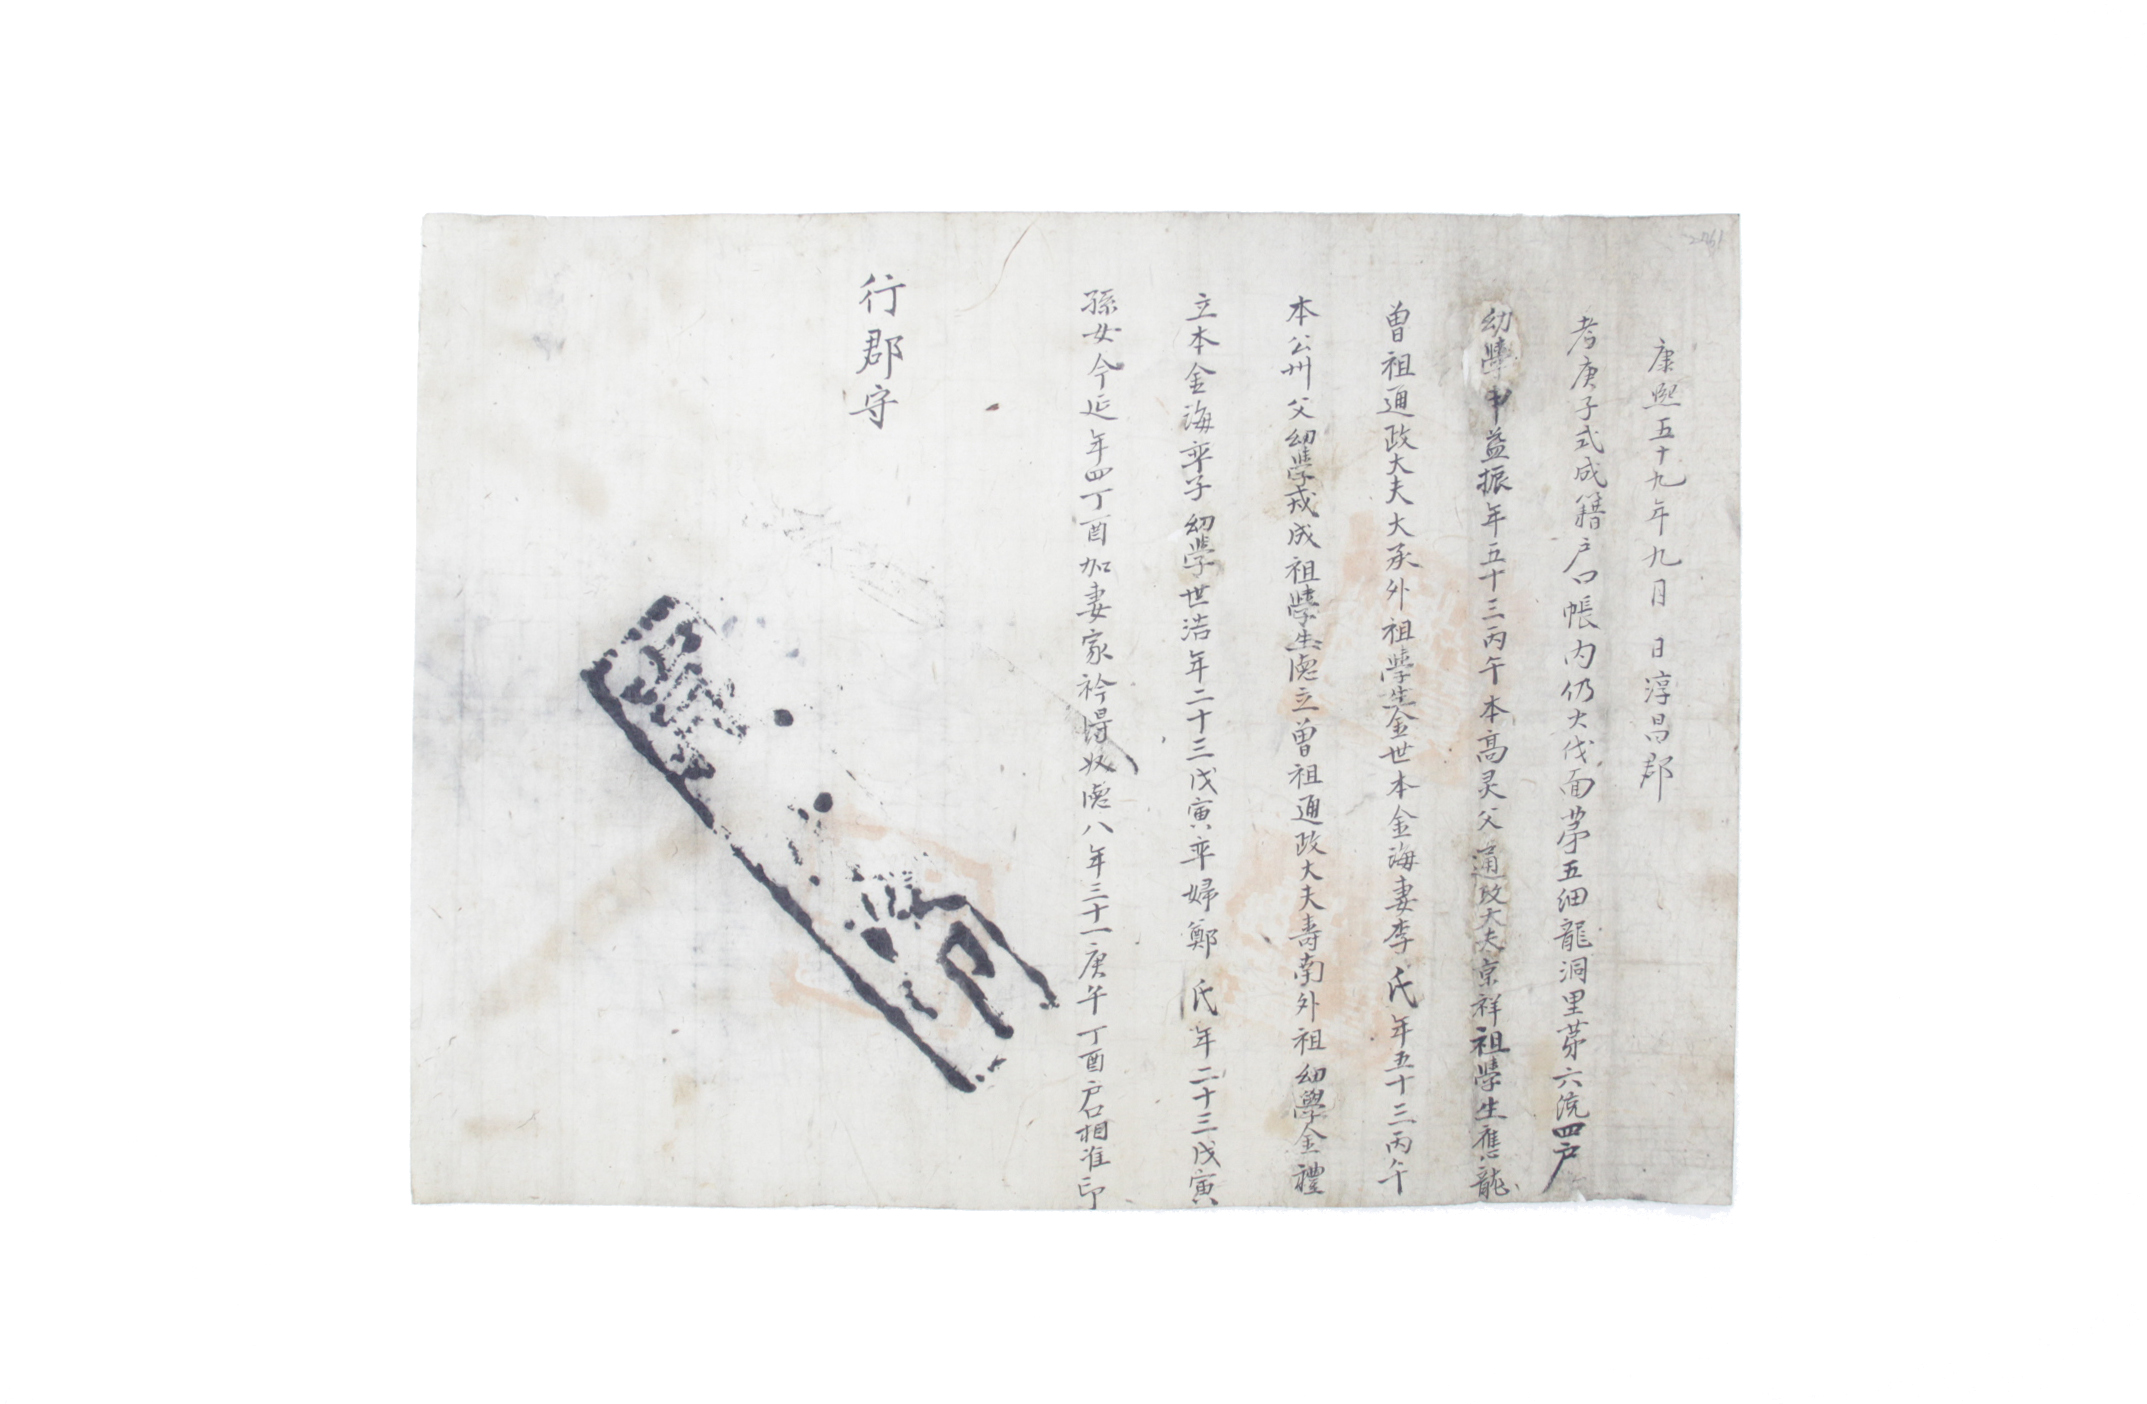 康熙五十九年九月 日淳昌郡
考庚子式成籍户口帳内仍大伐面苐五細龍洞里苐六統四户
幼學申益振年五十三丙午本高灵父通政大夫京祥祖學生應龍
曽祖通政大夫大承外祖學生金世本金海妻李氏年五十三丙午
本公州父幼學戎成祖學生德立曽祖通政大夫壽南外祖幼學金禮
立本金海率子幼學世浩年二十三戊寅率婦鄭氏年二十三戊寅
孫女今延年四丁酉加妻家衿得奴德八年三十一庚午丁酉户口相准印
行郡守